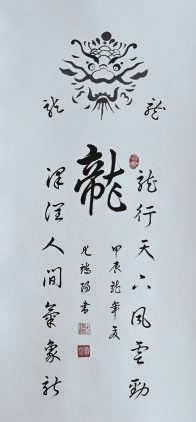 龙 龙
龍
龙行天下風雲動
澤潤人間氣象新
甲辰龙年夏
書